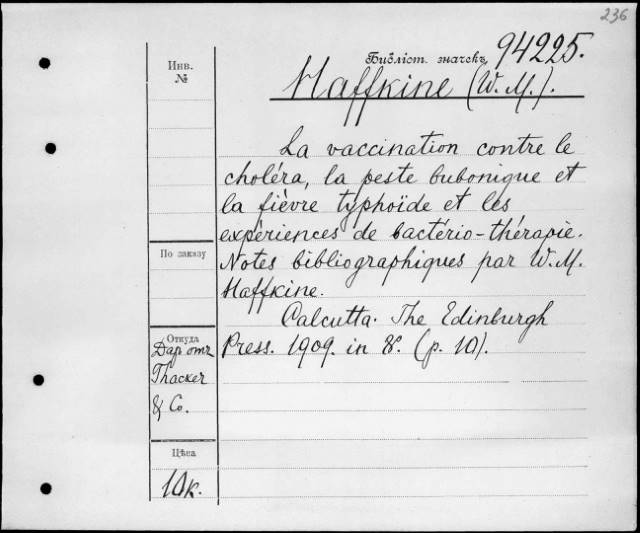 236
Инв.
№
Библіот. значекъ 94225.
Haffkine (W. M.).
La vaccination contre le
choléra, la peste bubonique et
la fièvre typhoïde et les
expèriences de bactério-thérapie.
Notes bibliographiques par W. M.
Haffkine.
Calcutta. The Edinburgh
Press. 1909. in 8. (p. 10).
По заказу
Откуда
Дар отъ
Thacker
& Co.
Цѣса
10к.